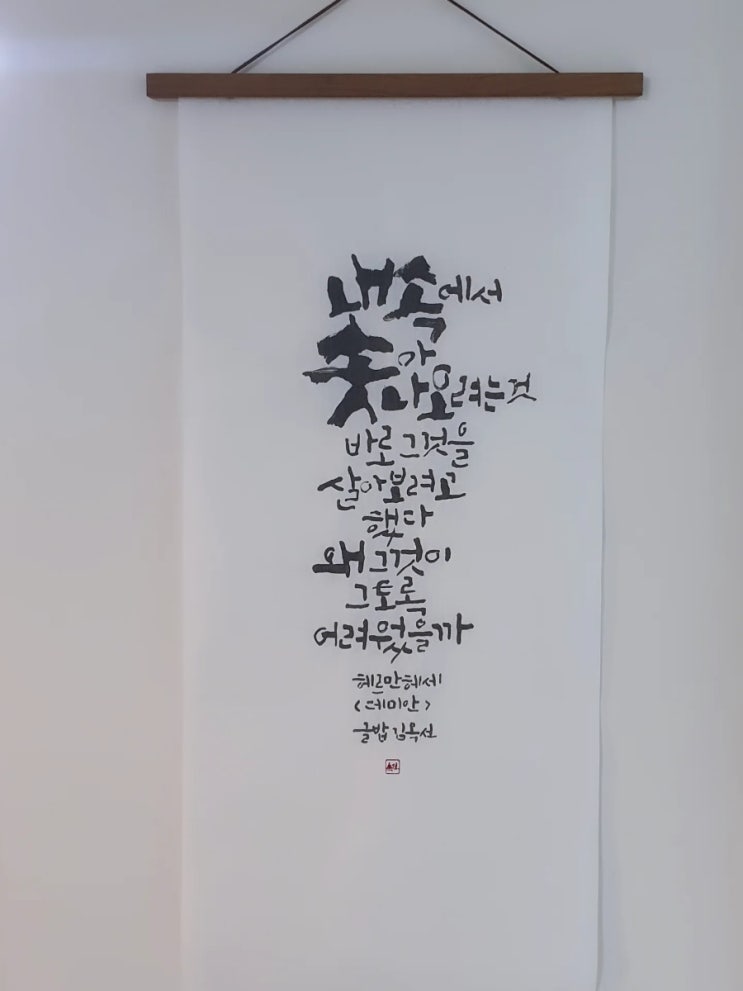 내 속에서
솟아
나오려는 것
바로 그것을
살아보려고
했다
왜 그것이
그토록
어려웠을까
헤르만헤세
<데미안>
글밥 김옥선